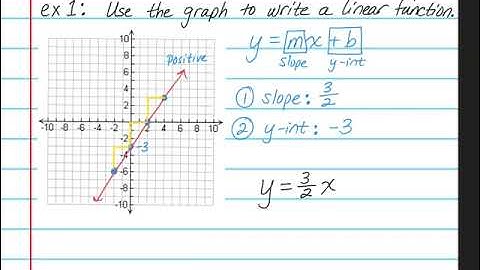 ex 1: Use the graph to write a linear function.
y = mx + b
slope y-int
① slope: 3/2
② y-int: -3
y = 3/2 x
positive
-3
10
8
6
4
2
-10 -8 -6 -4 -2 2 4 6 8 10
-2
-4
-6
-8
-10